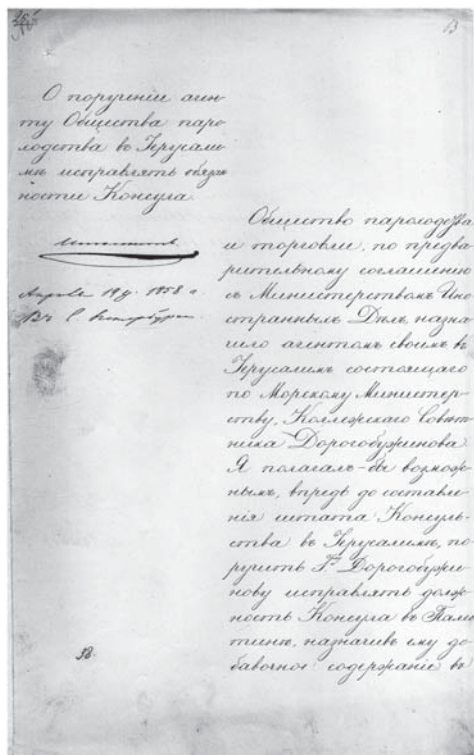 В
О порученіи аген-
ту Общества паро-
ходства въ Іерусали-
мѣ исправлять обязан-
ности Консула.
Апрѣля 19 д. 1858 г.
Въ С. Петербургѣ.
Общество пароходства
и торговли, по предва-
рительному соглашенію
съ Министерствомъ Ино-
странныхъ Дѣлъ, назна-
чило агентомъ своимъ въ
Іерусалимъ состоящаго
по Морскому Министер-
ству, Коллежскаго Совѣт-
ника Дорогобужинова.
Я полагалъ-бы возмож-
нымъ, впредь до составле-
нія штата Консуль-
ства въ Іерусалимѣ, по-
ручить Гну Дорогобужи-
нову исправлять долж-
ность Консула въ Пале-
стинѣ, назначивъ ему до-
бавочное содержаніе въ